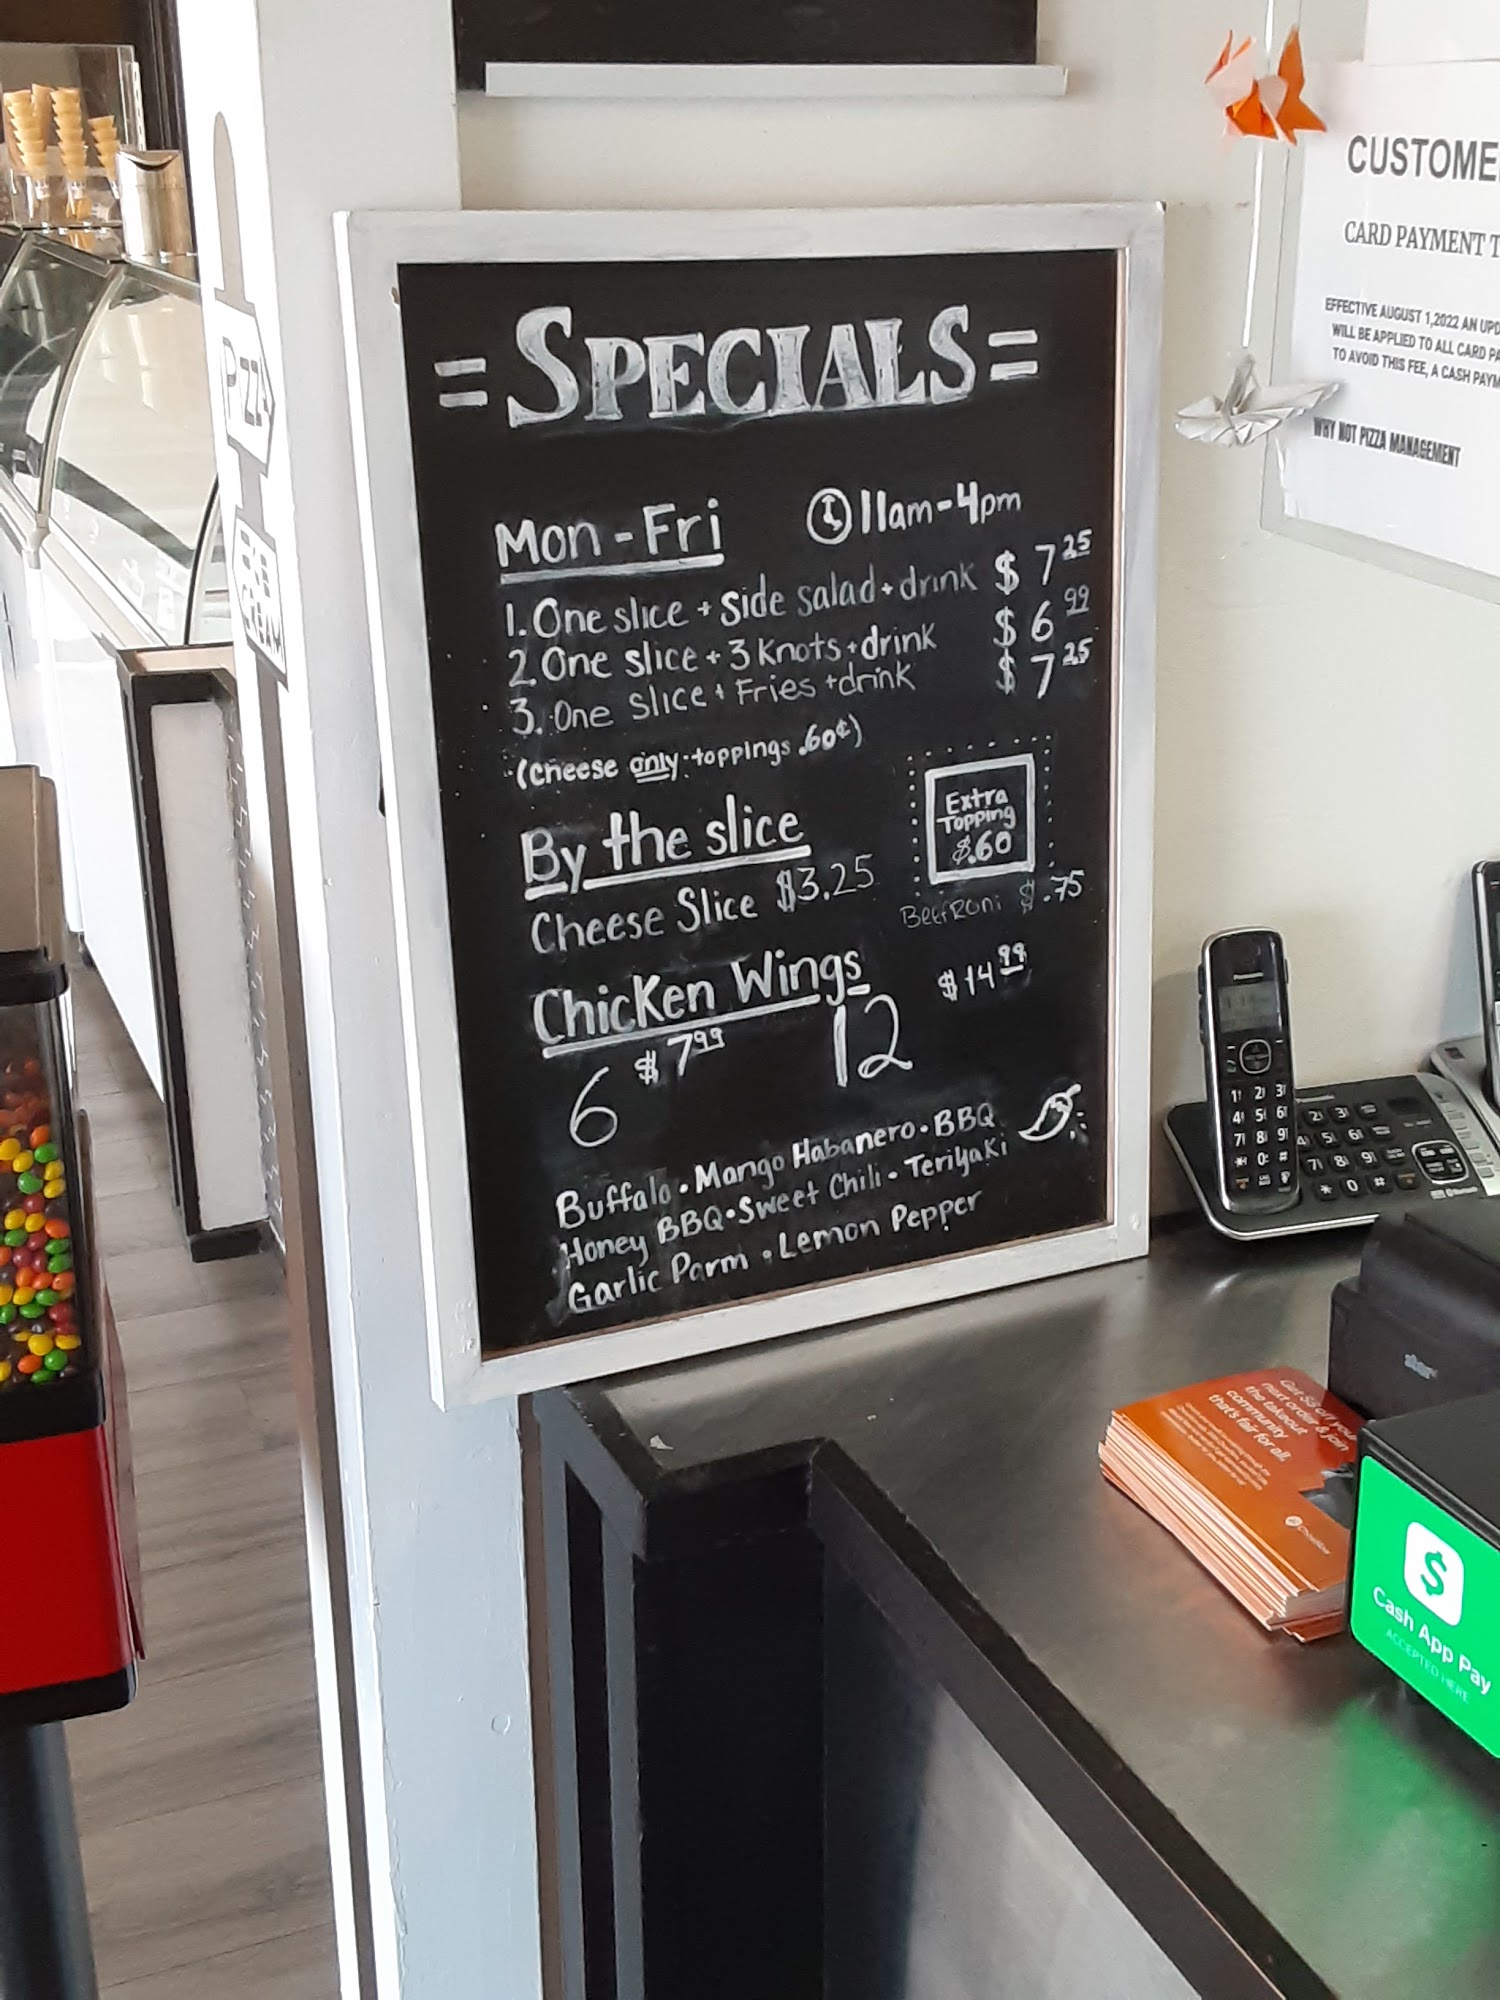 = SPECIALS =
Mon - Fri 11am - 4pm
1. One slice + side salad + drink $ 7 25
2. One slice + 3 Knots + drink $ 6 99
3. One slice + Fries + drink $ 7 25
(cheese only. toppings .60¢)
By the slice
Cheese Slice $3.25
Extra
Topping
$.60
BeefRoni $.75
Chicken Wings
6 $7 99 12 $14 99
Buffalo • Mango Habanero • BBQ
Honey BBQ • Sweet Chili • Teriyaki
Garlic Parm • Lemon Pepper
PIZZA
ICE
CREAM
CUSTOME
CARD PAYMENT T
EFFECTIVE AUGUST 1,2022 AN UPD
WILL BE APPLIED TO ALL CARD PA
TO AVOID THIS FEE, A CASH PAYM
WHY NOT PIZZA MANAGEMENT
Panasonic
Get $5 off your
next order & join
the takeout
community
that's fair for all.
$
Cash App Pay
ACCEPTED HERE